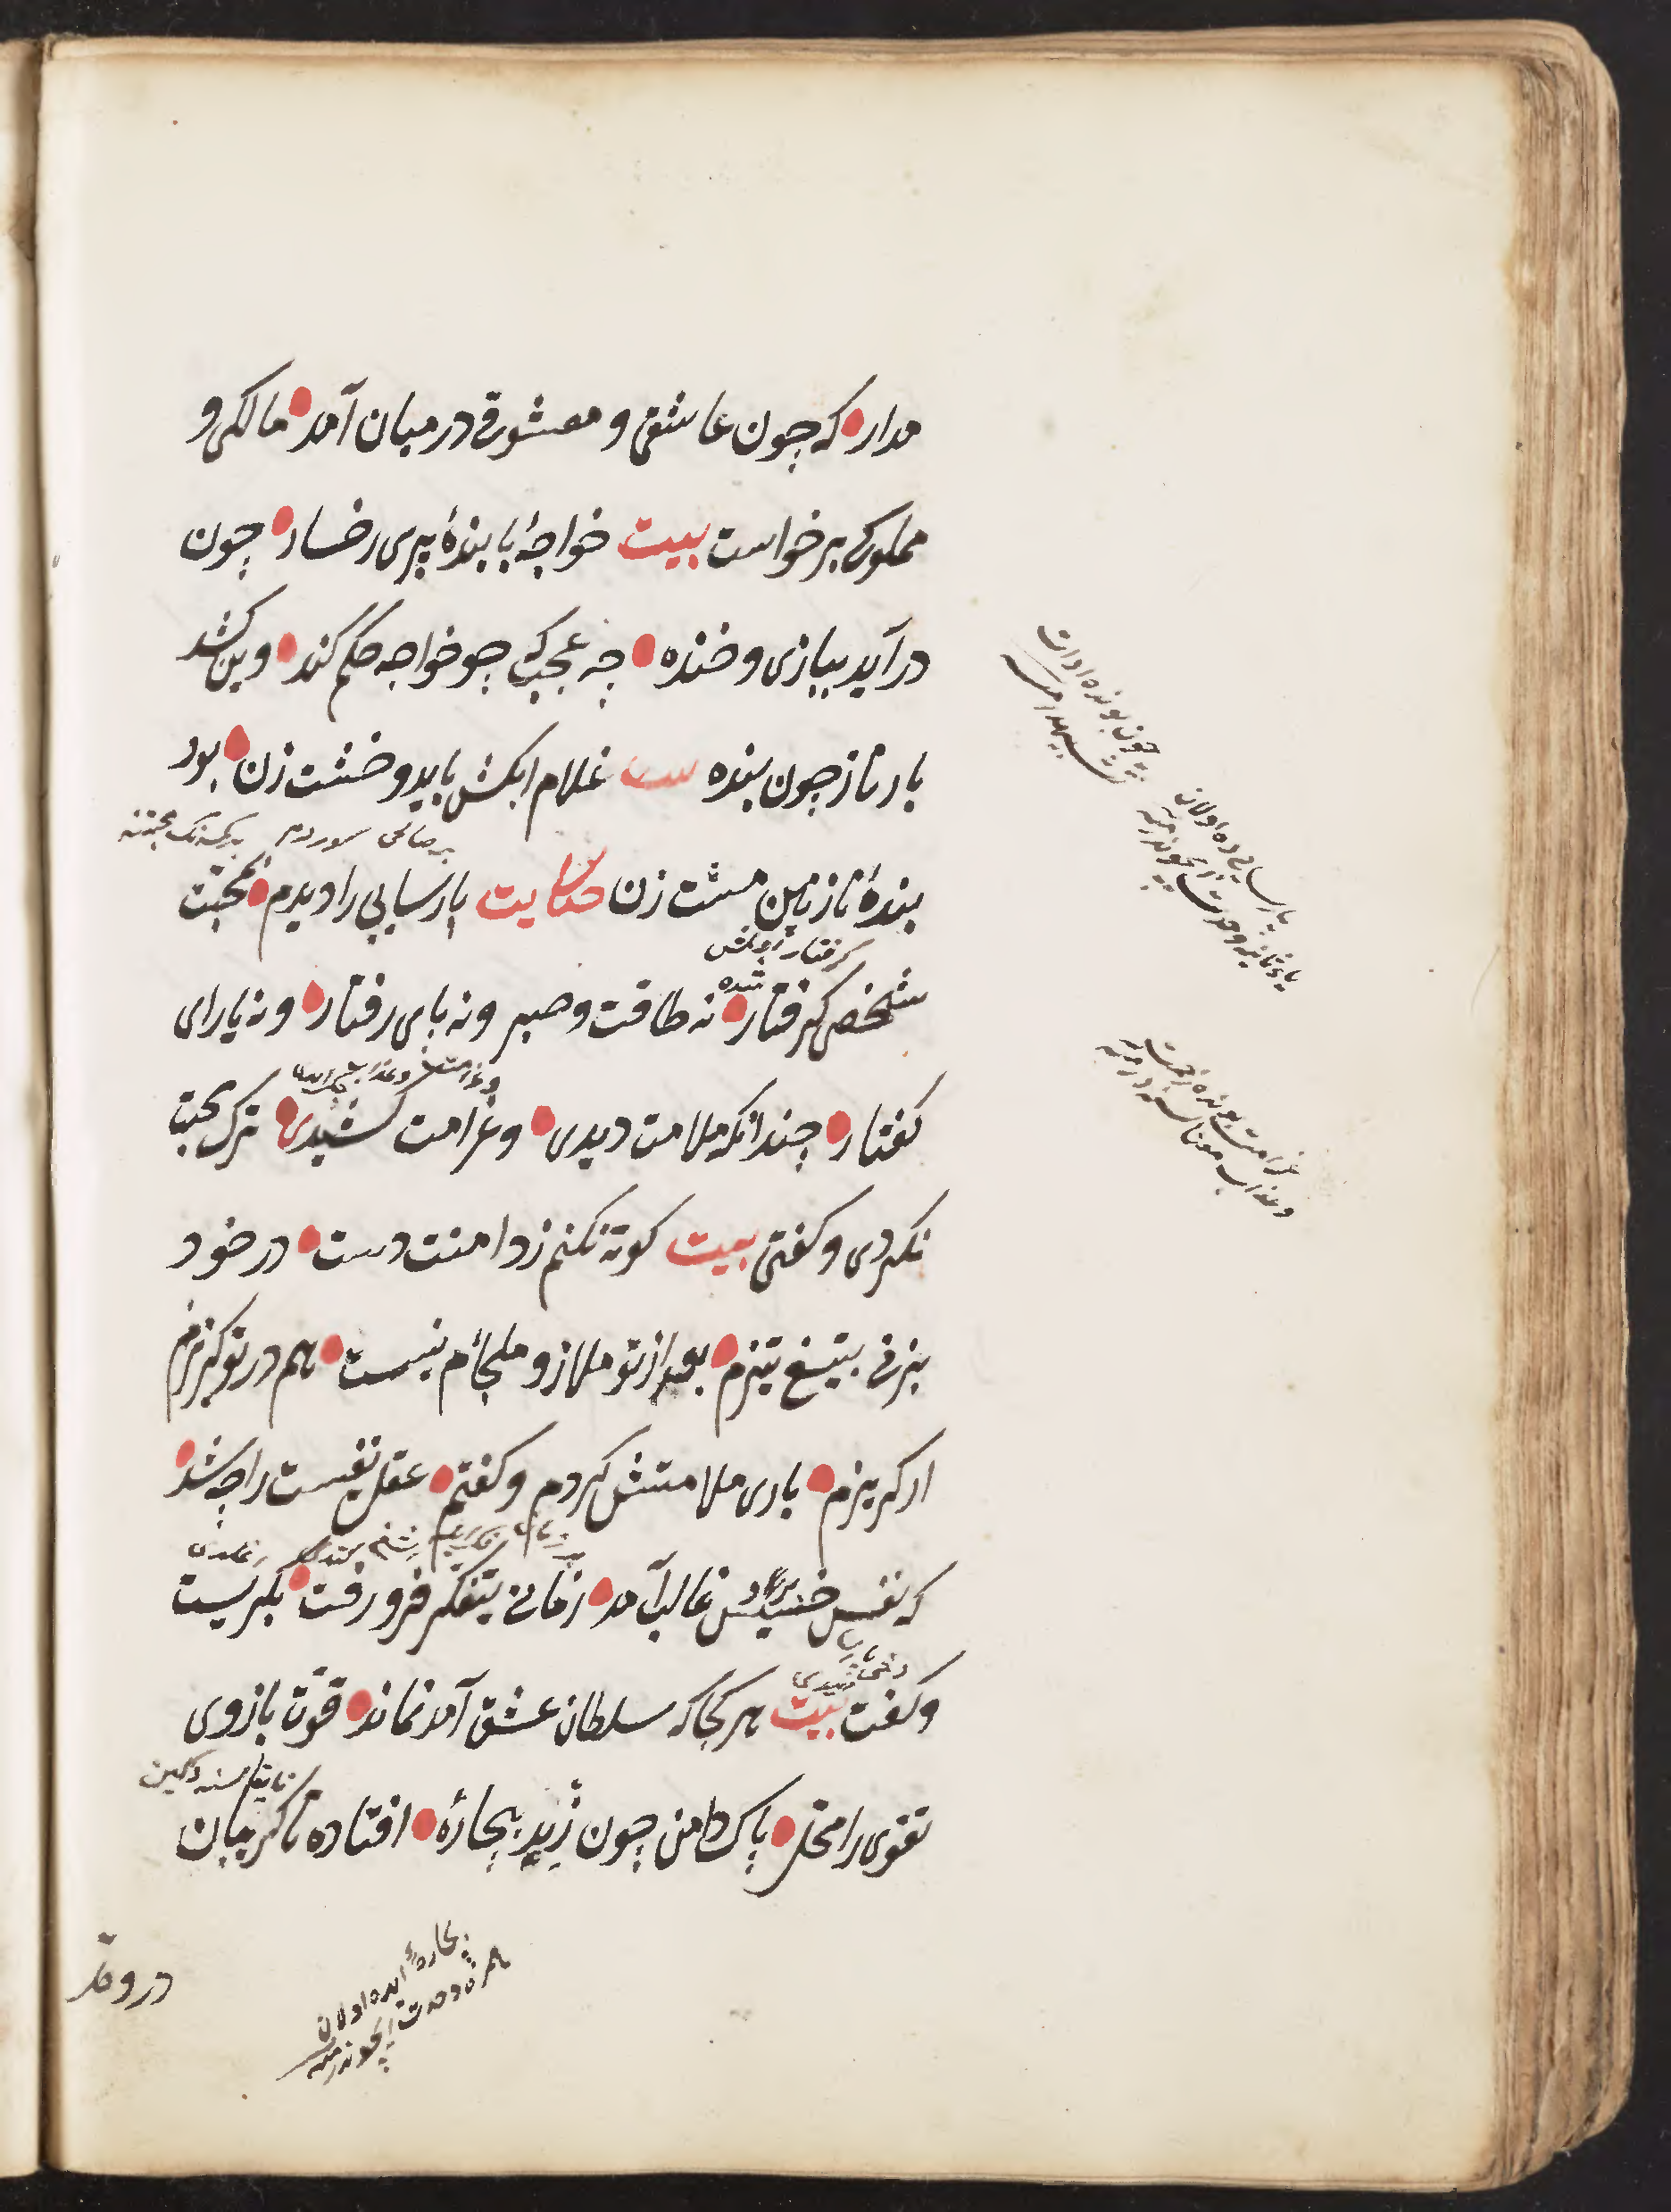 مدار که چون عاشقی و معشوقی درمیان آمد مالکی و
مملوکی برخواست بیت خواجهٔ با بندهٔ پری رخسار چون
درآید ببازی و خنده چه عجب که چو خواجه حکم کند وین کشد
بار ناز چون بنده بیت غلام ابکش باید و خشت زن بود
بندهٔ نازنین مشت زن حکایت پارسایی را دیدم بمحبّت
شخصی گرفتار نه طاقت و صبر و نه پای رفتار و نه یارای
کفتار چندانکه ملامت دیدی و غرامت کشیدی ترک محبت
نکردی و کفتی بیت کوته نکنم ز دامنت دست در خود
بزنی بتیغ تیزم بعد از تو ملاذ و ملجأم نیست هم در تو کریزم
ار کریزم باری ملامتش کردم و کفتم عقل نفیست را چه شد
که نفس خسیس غالب آمد زمانی بتفکّر فرو رفت بکریست
و کفت بیت هر کجا که سلطان عشق آمد نماند قوّت بازوی
تقوی را محل پاک دامن چون زید بیچارهٔ افتاده تا کریبان
در وحل
پارسایی ده اولان
یای تانیه وحدت ایچوندر منه
غرامت بونده زحمت
و عذاب معناسنه در منه
بیچارهٔ ده اولان
همزه وحدت ایچوندر منه